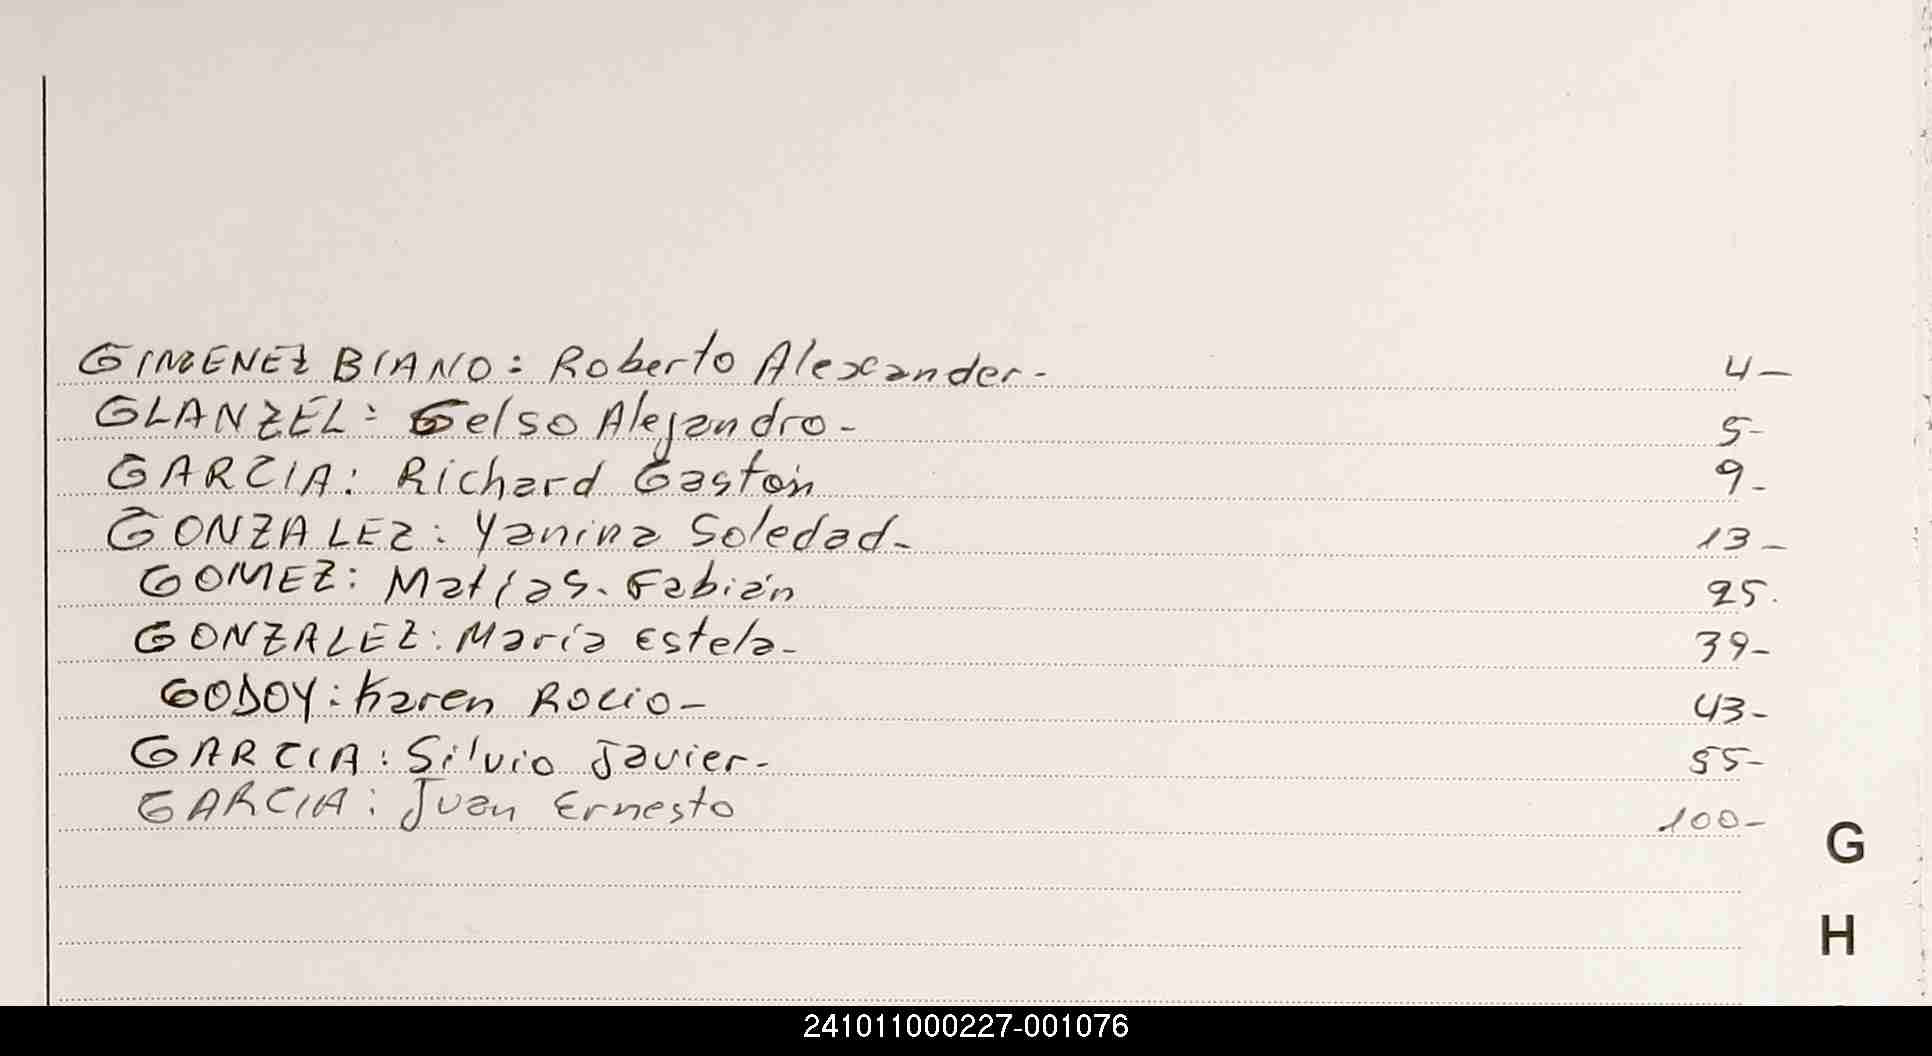 GIMENEZ BIANO: Roberto Alexander- 4-
GLANZEL: Gelso Alejandro- 5-
GARCIA: Richard Gastón 9-
GONZALEZ: Yanina Soledad- 13-
GOMEZ: Matías. Fabián 25.
GONZALEZ: María Estela- 39-
GODOY: Karen Rocio- 43-
GARCIA: Silvio Javier- 55-
GARCIA: Juan Ernesto 100-
G
H
241011000227-001076